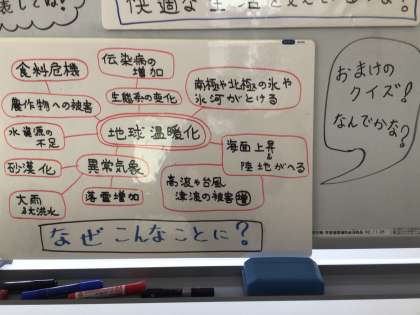 快適な生活を支えているな。
食料危機
伝染病の
増加
南極や北極の氷や
氷河がとける
農作物への被害
生態系の変化
水資源の
不足
地球温暖化
海面上昇
陸地がへる
砂漠化
異常気象
高波や台風
津波の被害増
大雨
洪水
落雷増加
なぜこんなことに?
おまけの
クイズ!
なんでかな?